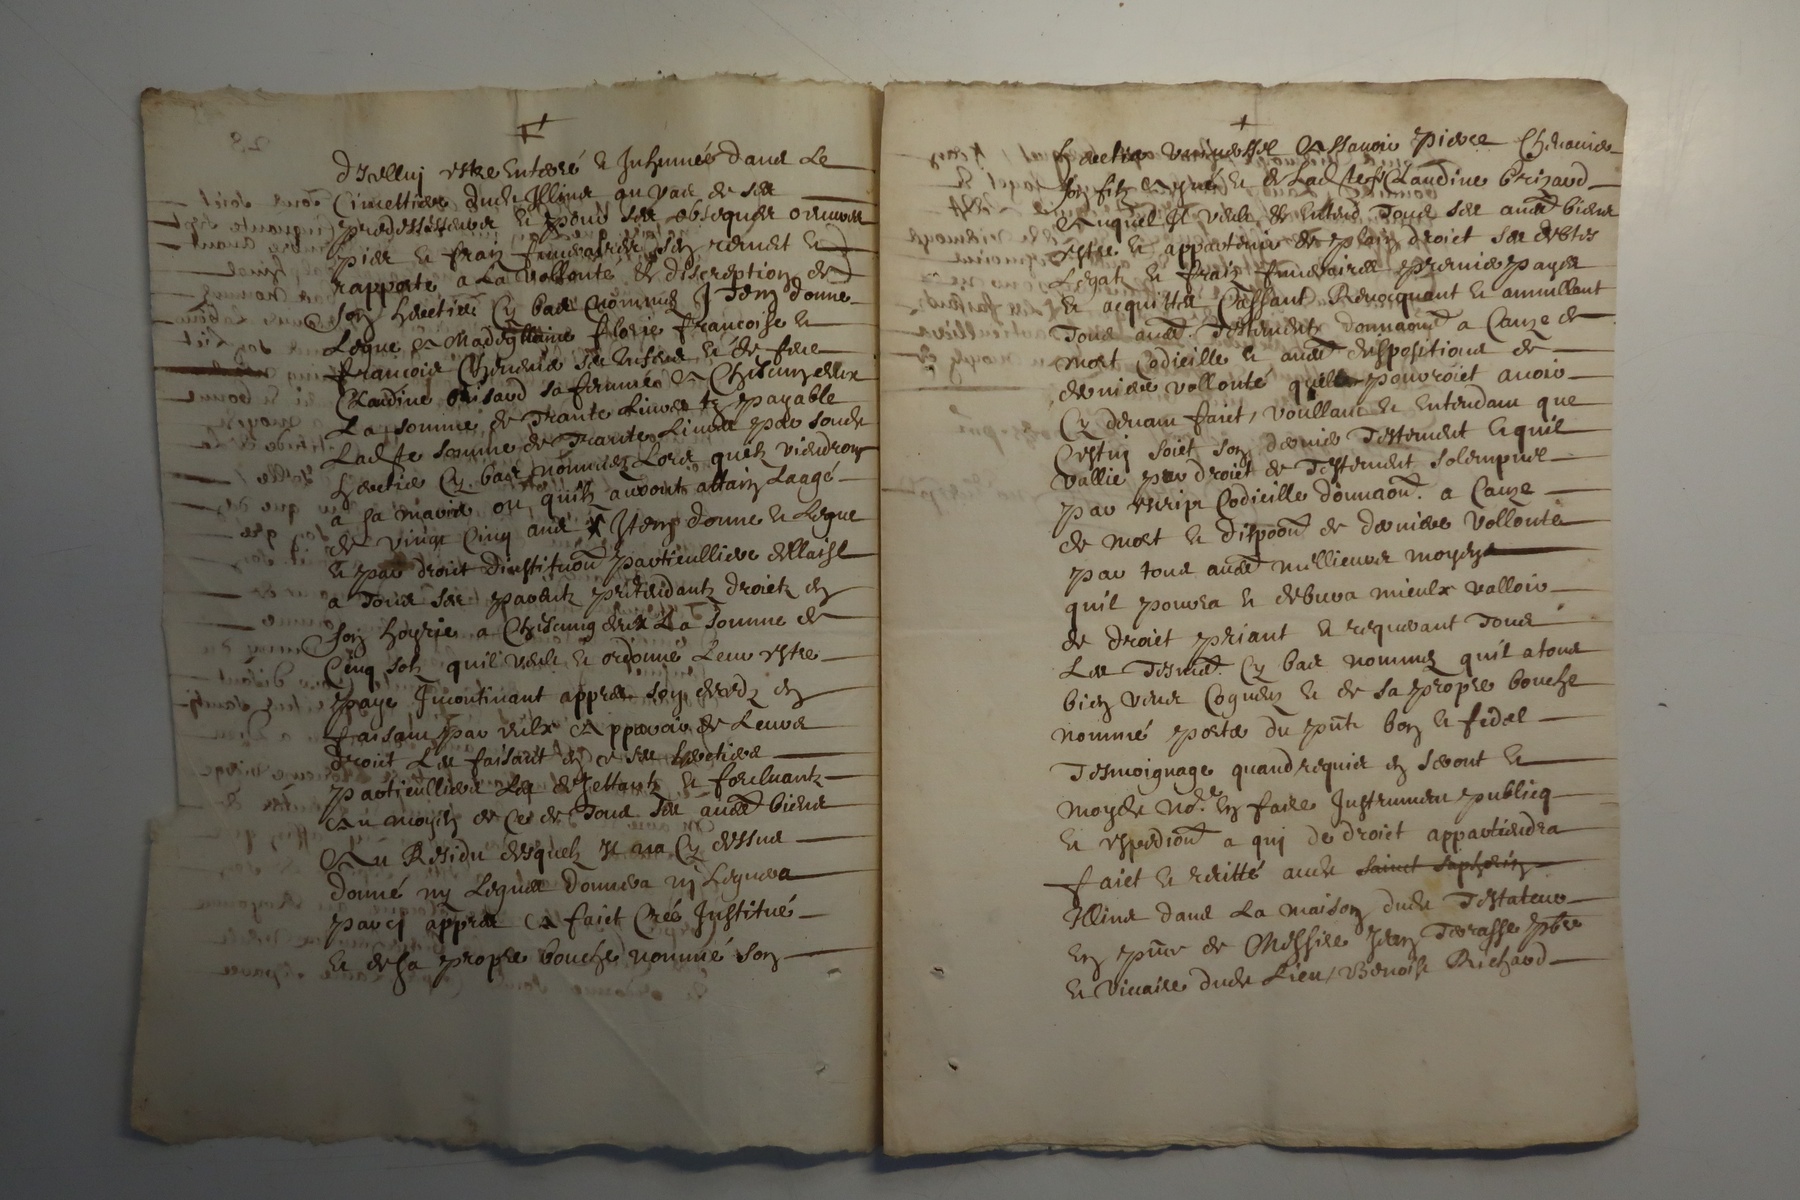 d'Icelluy estre enterré & Inhumée dans Le
Cimettiere dudt Illins au vas de ses
predessesseurs & pour ses obseques œuvres
pies & fraiz funeraires s'en remect &
rapporte a La vollonte & discreption de
son heretier Cy bas nommez Item donne
Legue a Magdellaine florie francoise &
francois ses enfens & de feue
Claudine brisaud sa femme a Chescung d'eux
La somme de Trante Livres tz payable
Ladte somme de Trante Livres par sondt
heretier Cy bas nommez Lors quilz viendront
a sa marier ou quilz auront attain Laagé
de vingt Cinq ans Item donne & Legue
& par droict d'institution particulliere dellaisse
a Tous ses parentz pretendantz droictz en
son hoyrie a Chescung d'eux La somme de
Cinq solz quil veult & ordonne Leur estre
paye Incontinant appres son decedz en
faisant par eulx apparoir de Leurs
droict Les faisant en ce ses heretiers
particulliers Les dejettantz & forcluantz
au moyen de ce de Tous ses autres biens
Au Residu desquelz Il na Cy dessus
donné ny Legué donnera ny Leguera
parci appres a faict Créé Institué
& de sa propre bouche nommé son
heretier universel Assavoir pierre
son filz ayné & de Ladte feu Claudine brizaud
Auquel Il veult & entend Tous ses autres biens
estre & appartenir de plain droict ses debtes
Legat & fraiz funeraires premier payes
& acquittes Cassant Revocquant & annullant
Tous autres Testement donnaon a Cauze de
mort Codicille & autres dispositions de
derniere vollonté quil pouvroict avoir
Cy devam faict, voullant & entendam que
Cestuy soict son dernier Testement & quil
vallie par droict de Testement solempnel
par escript Codicille donnaon a Cauze
de mort & dispoon de derniere vollonte
par tous autres millieurs moyens
quil pourra & debvra mieulx valloir
de droict priant & requerant Tous
Les Tesmo Cy bas nommez quil a tous
bien veus Cognus & de sa propre bouche
nommé porter du pnt bon & fidel
Tesmoignage quand requis en seront &
moydt nore en faire Instrument publicq
& expedion a qui de droict appartiendra
faict & recitté audt
Illins dans La maison dudt Testateur
en pnce de Messire Jean Terrasse pbre
& vicaire dudt Lieu, Benoist Richard